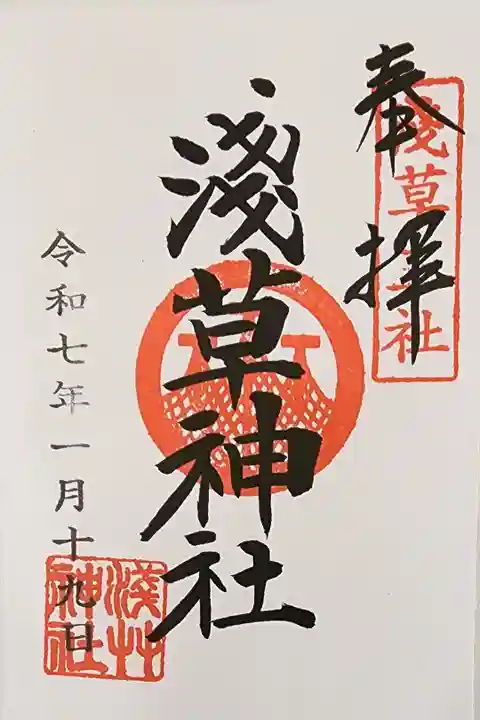 奉拝
淺草神社
淺草神社
令和七年一月十九日
淺草神社